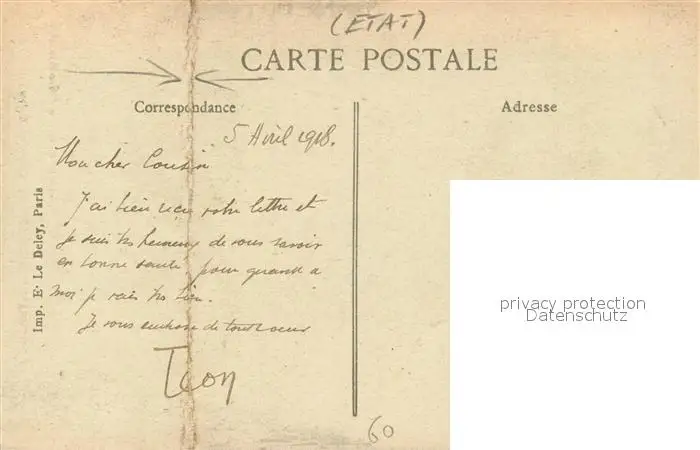 (ETAT)
CARTE POSTALE
Correspondance
Adresse
5 Avril 1918.
Mon cher Cousin
J'ai bien reçu votre lettre et
je suis très heureux de vous savoir
en bonne santé, pour quand à
moi je vais très bien.
Je vous embrasse de tout coeur
Léon
Imp. E. Le Deley, Paris
privacy protection
Datenschutz
60